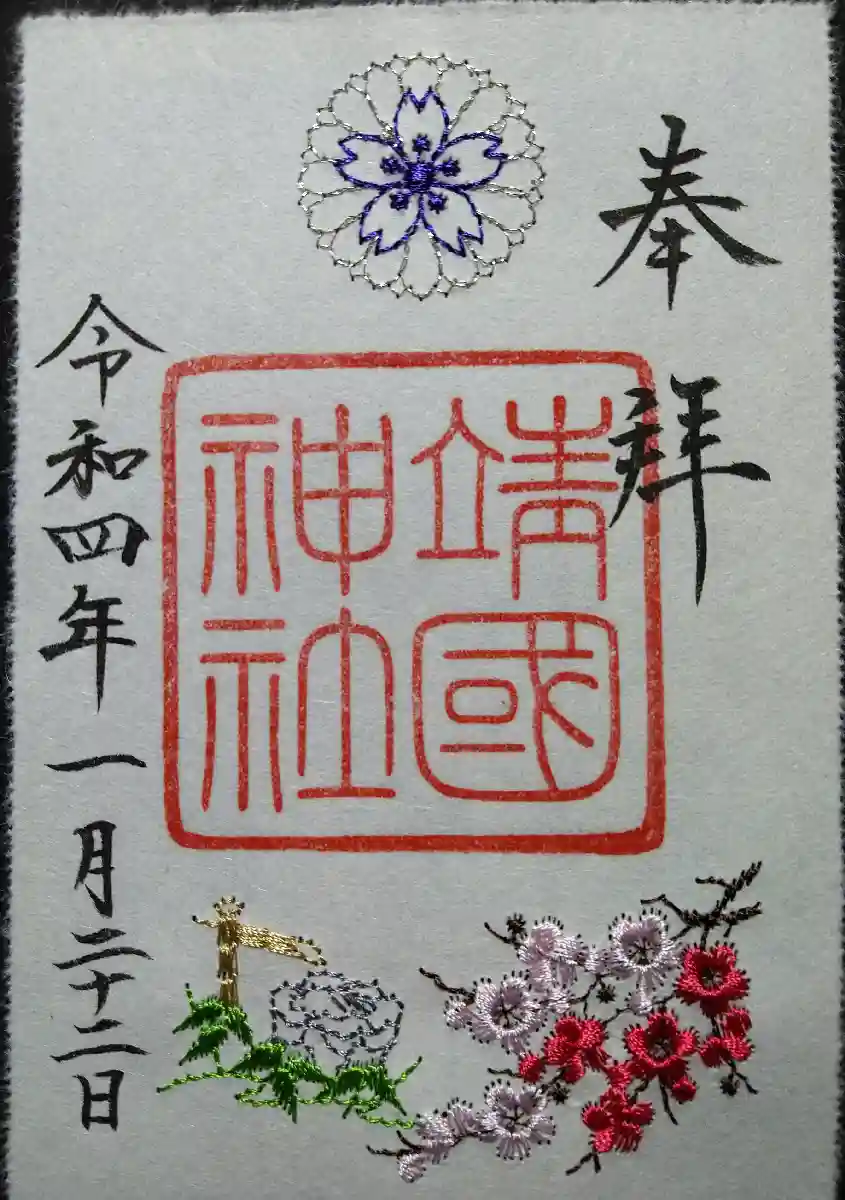 奉拝
靖國神社
令和四年一月二十二日